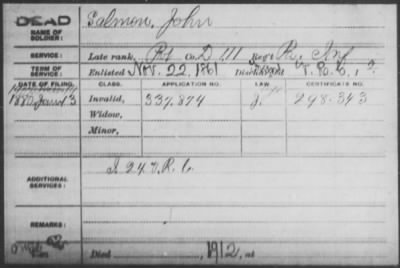 DEAD
NAME OF SOLDIER:
Salmon, John
SERVICE:
Late rank, Pt Co. D 111 Reg't Pa. Inf
TERM OF SERVICE:
Enlisted Nov. 22, 1861 Discharged
DATE OF FILING. CLASS. APPLICATION NO. LAW. CERTIFICATE NO.
1880 Jan'y 13 Invalid, 337.874 298.343
Widow,
Minor,
ADDITIONAL SERVICES:
I 24 V.R.C.
REMARKS:
Died 1912, at